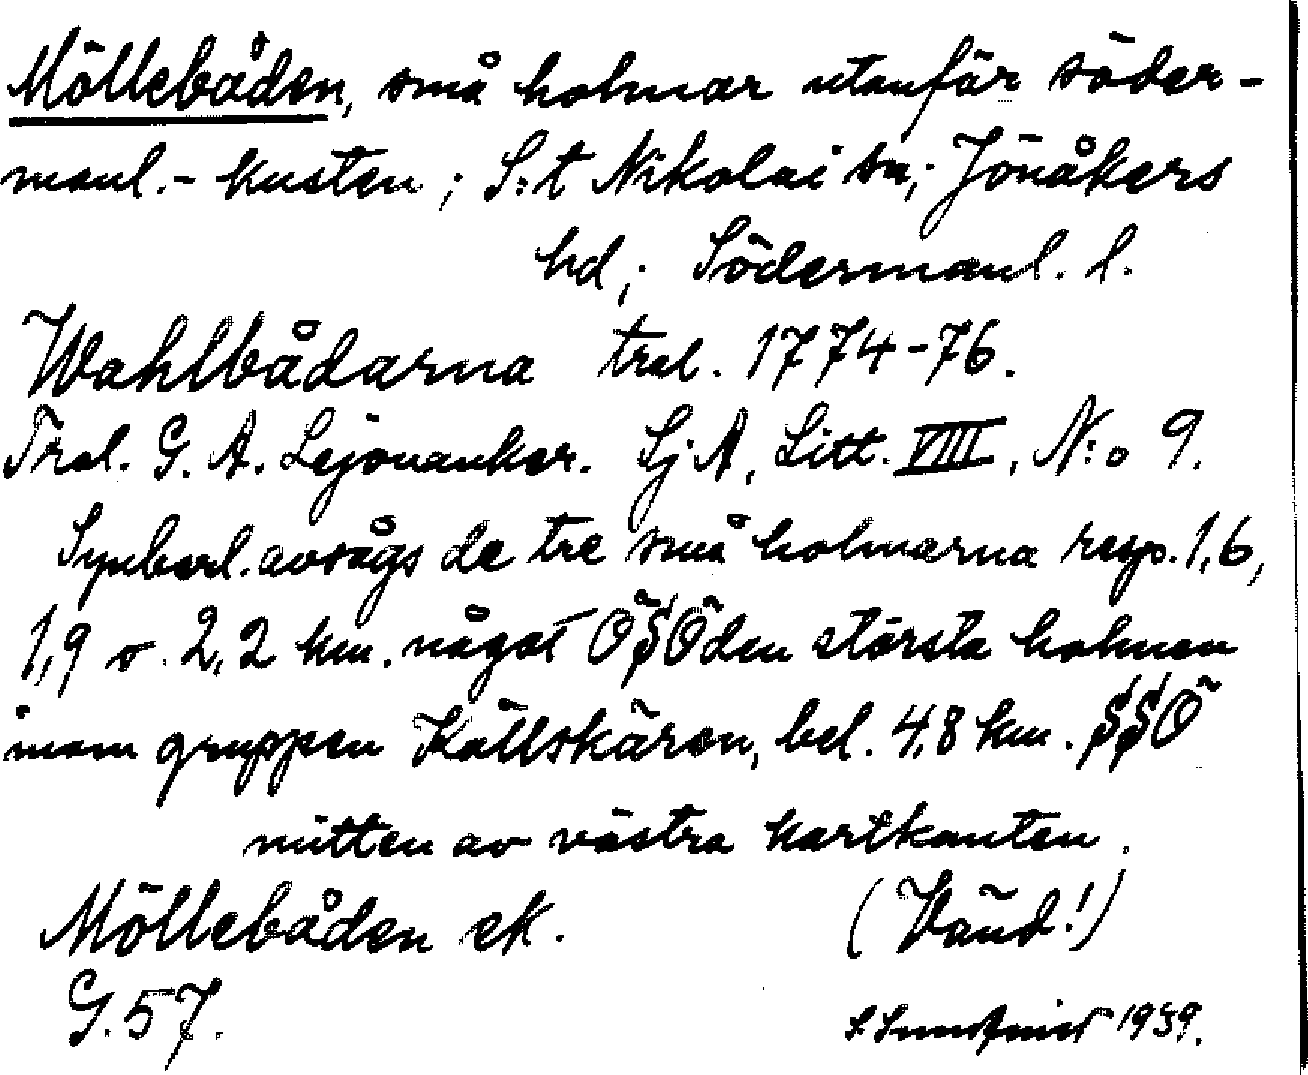 Möllebåden, små holmar utanför söder-
manl.- kusten; S:t Nikolai sn; Jönåkers
hd; Södermanl. l.
Wahlbådarna tral. 1774-76.
Tral. G. A. Lejonanker. Sj A, Litt. VIII, N:o 9.
Synberl. avsågs de tre små holmarna resp. 1,6,
1,9 o. 2,2 km. något ÖSÖ den största holmen
inom gruppen Källskären, bel. 4,8 km. SSÖ
mitten av västra kartkanten.
Möllebåden ek. (Vänd!)
G. 57. S. Sundqvist 1939.